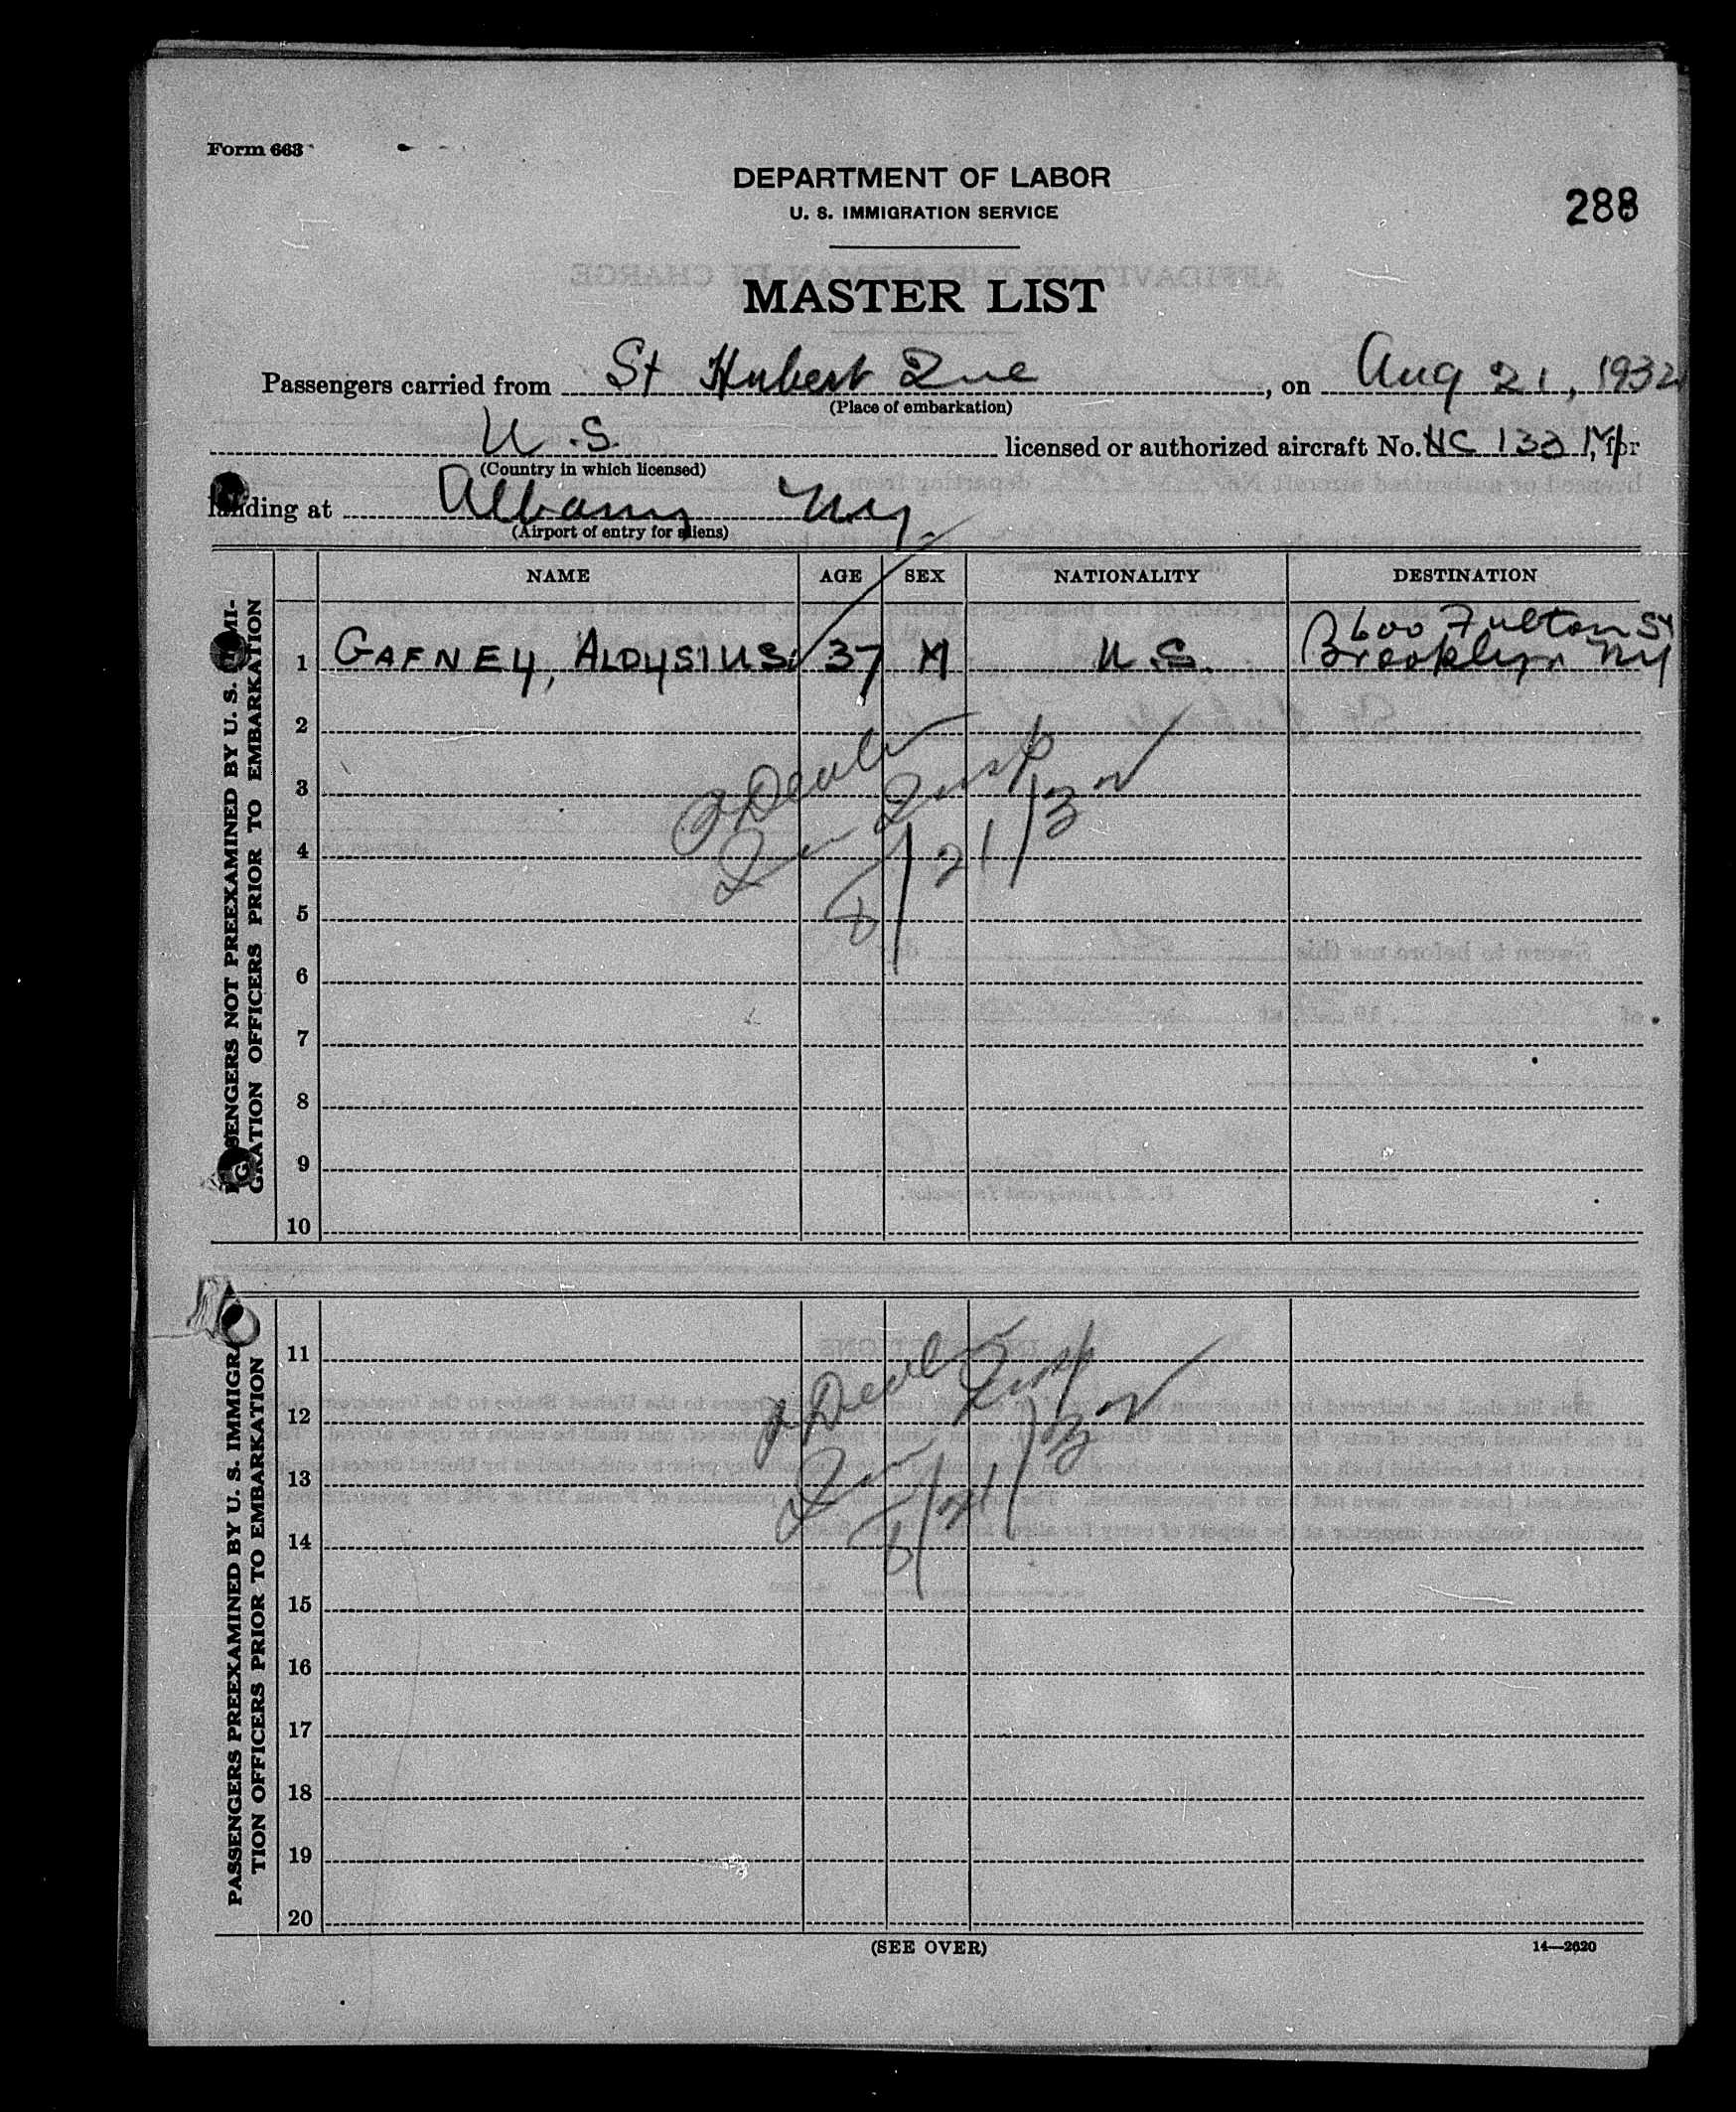 Form 663
DEPARTMENT OF LABOR
U. S. IMMIGRATION SERVICE
288
MASTER LIST
Passengers carried from St Hubert Que, on Aug 21, 1932
(Place of embarkation)
U.S. licensed or authorized aircraft No. NC 133 M, for
(Country in which licensed)
landing at Albany N.Y.
(Airport of entry for aliens)
NAME AGE SEX NATIONALITY DESTINATION
PASSENGERS NOT PREEXAMINED BY U. S. IMMI-
GRATION OFFICERS PRIOR TO EMBARKATION
600 Fulton St
1 GAFNEY, ALOYSIUS 37 M U.S. Brooklyn NY
2
3
4
5
6
7
8
9
10
Insp
8/21/32
PASSENGERS PREEXAMINED BY U. S. IMMIGRA-
TION OFFICERS PRIOR TO EMBARKATION
11
12
13
14
15
16
17
18
19
20
Insp
8/21/32
(SEE OVER)
14—2620